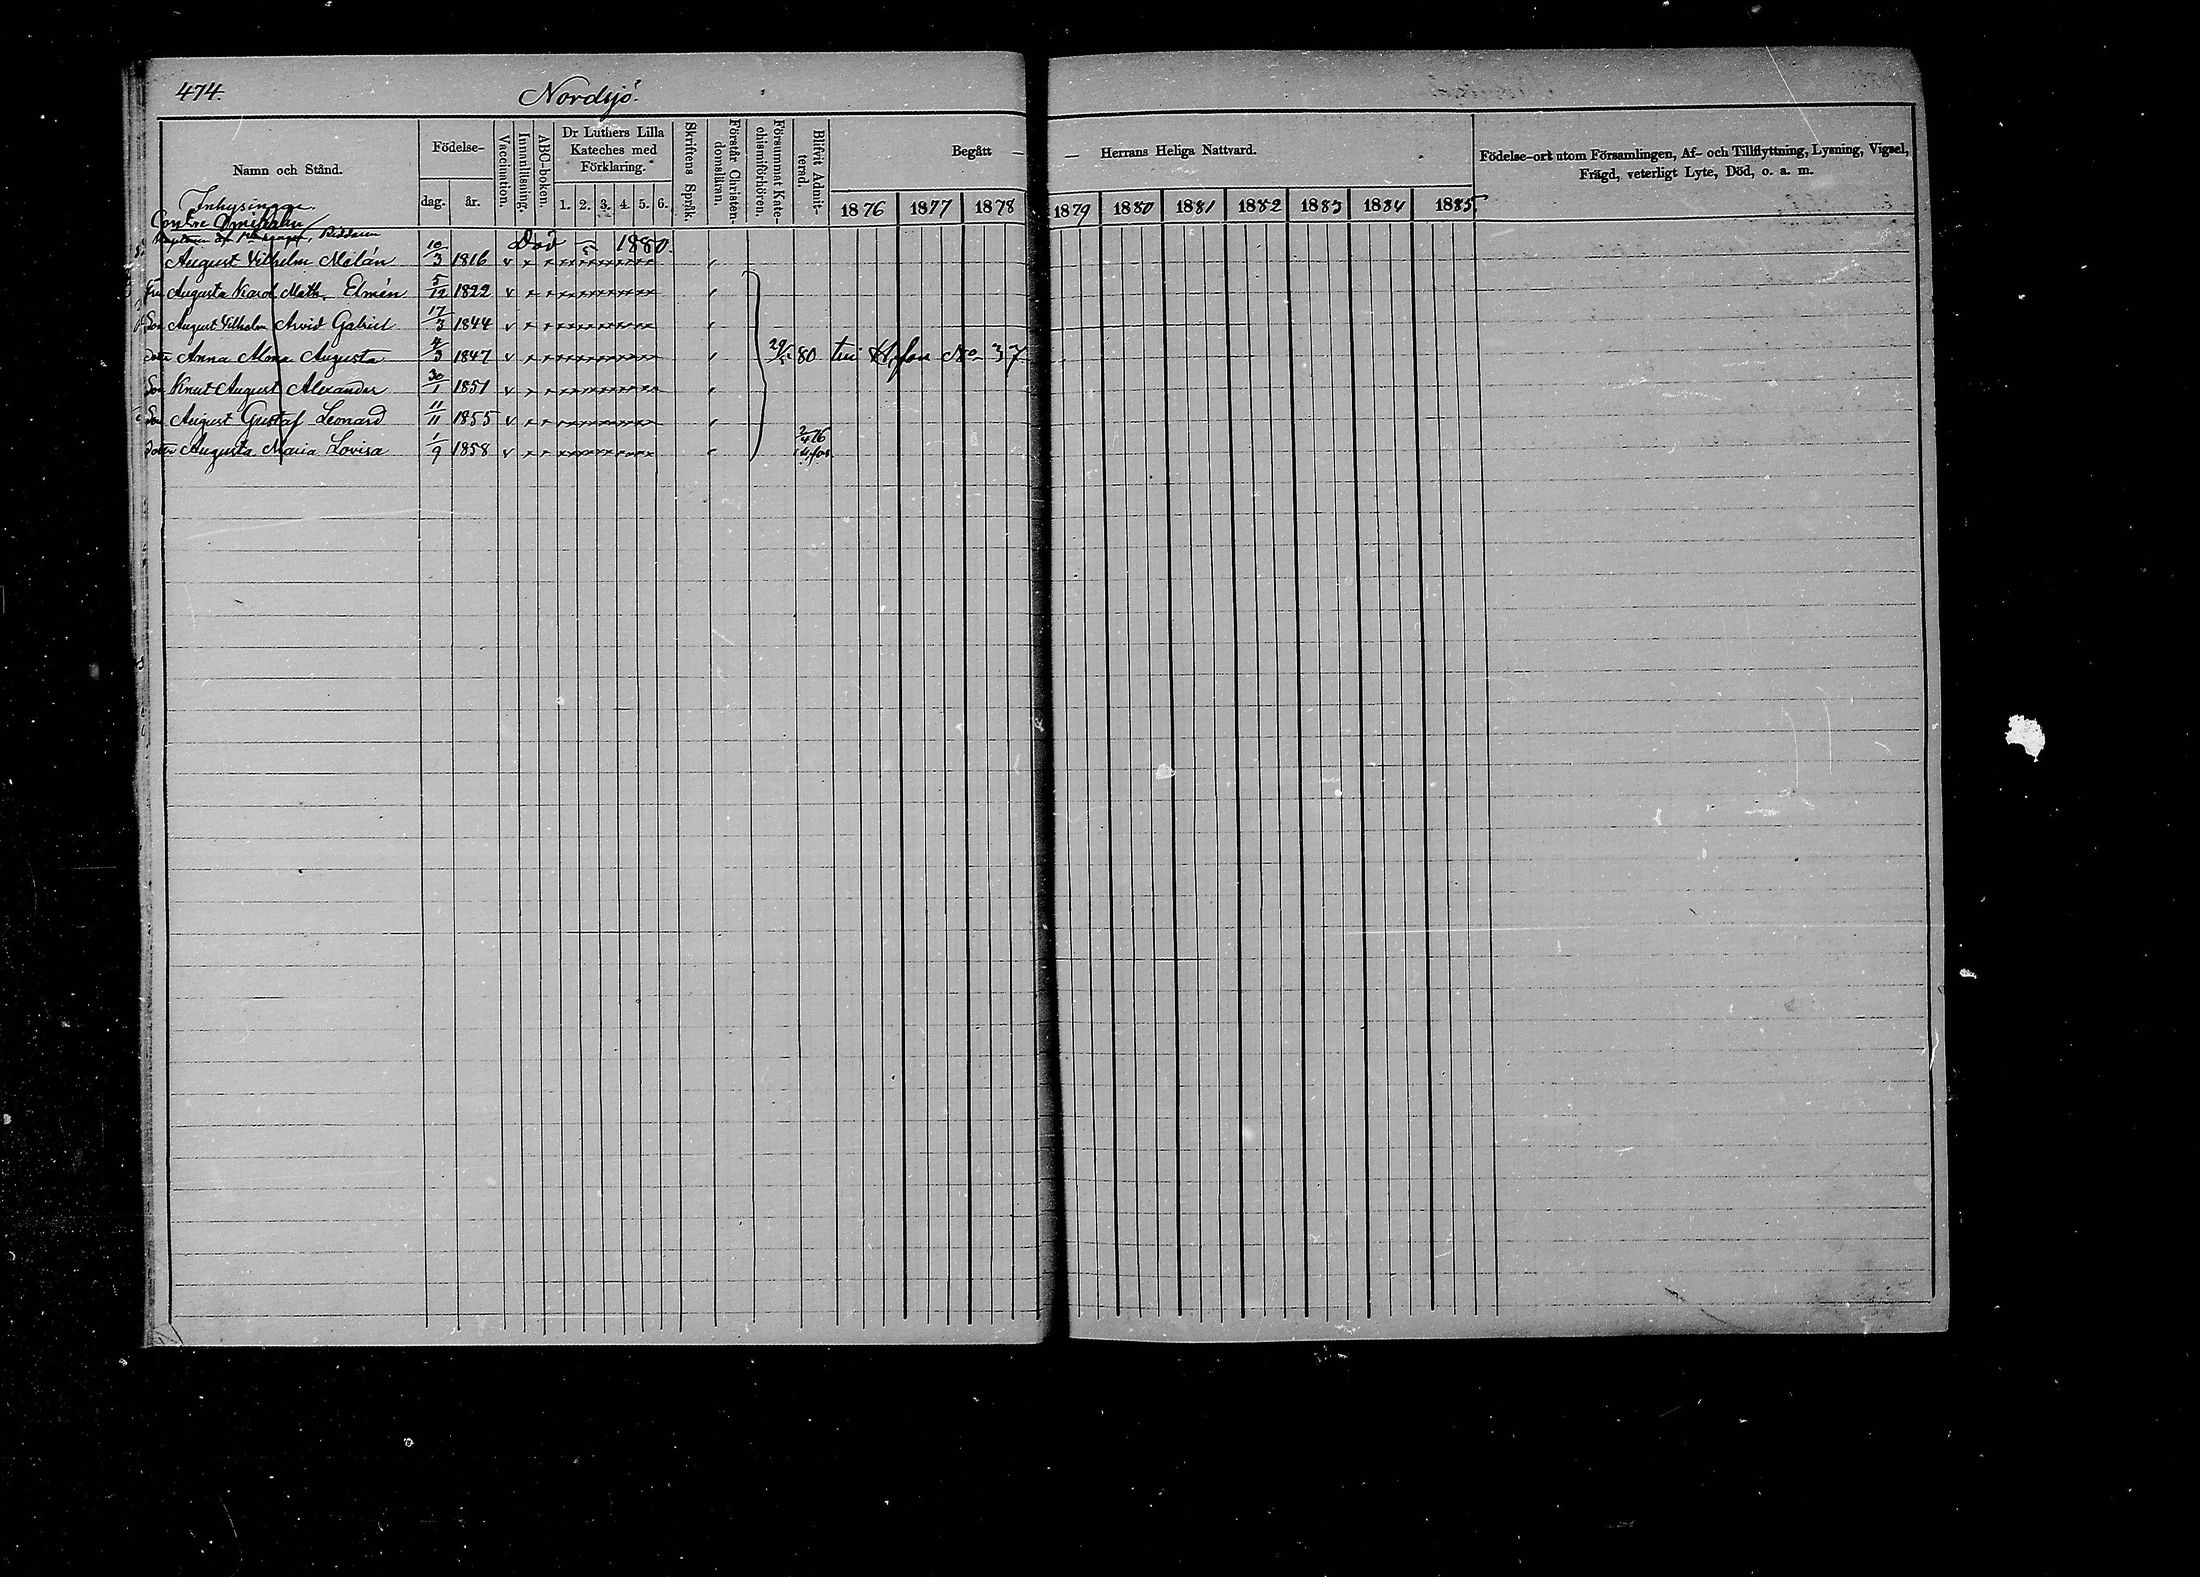 474.
Nordsjö.
Namn och Stånd.
Födelse-
dag. år.
Vaccination.
Innanläsning.
ABC-boken.
Dr Luthers Lilla
Kateches med
Förklaring.
1. 2. 3. 4. 5. 6.
Skriftens Språk.
Förstår Christen-
domsläran.
Försummat Kate-
chismiförhören.
Blifvit Admit-
terad.
Begått — — Herrans Heliga Nattvard.
1876 1877 1878 1879 1880 1881 1882 1883 1884 1885
Födelse-ort utom Församlingen, Af- och Tillflyttning, Lysning, Vigsel,
Frägd, veterligt Lyte, Död, o. a. m.
Inhysingar.
Contre Amiralen
Riddaren
Död 1880.
August Vilhelm Melán 10/3 1816
Fru Augusta Karol. Math. Elmén 5/12 1822
Son August Vilhelm Arvid Gabriel 17/3 1844
Dotter Anna Alma Augusta 4/3 1847 80 till H:fors No 37
Son Knut August Alexander 30/1 1851
Son August Gustaf Leonard 11/11 1855
Dotter Augusta Maria Lovisa 1/9 1858 2/4 76
H:fors